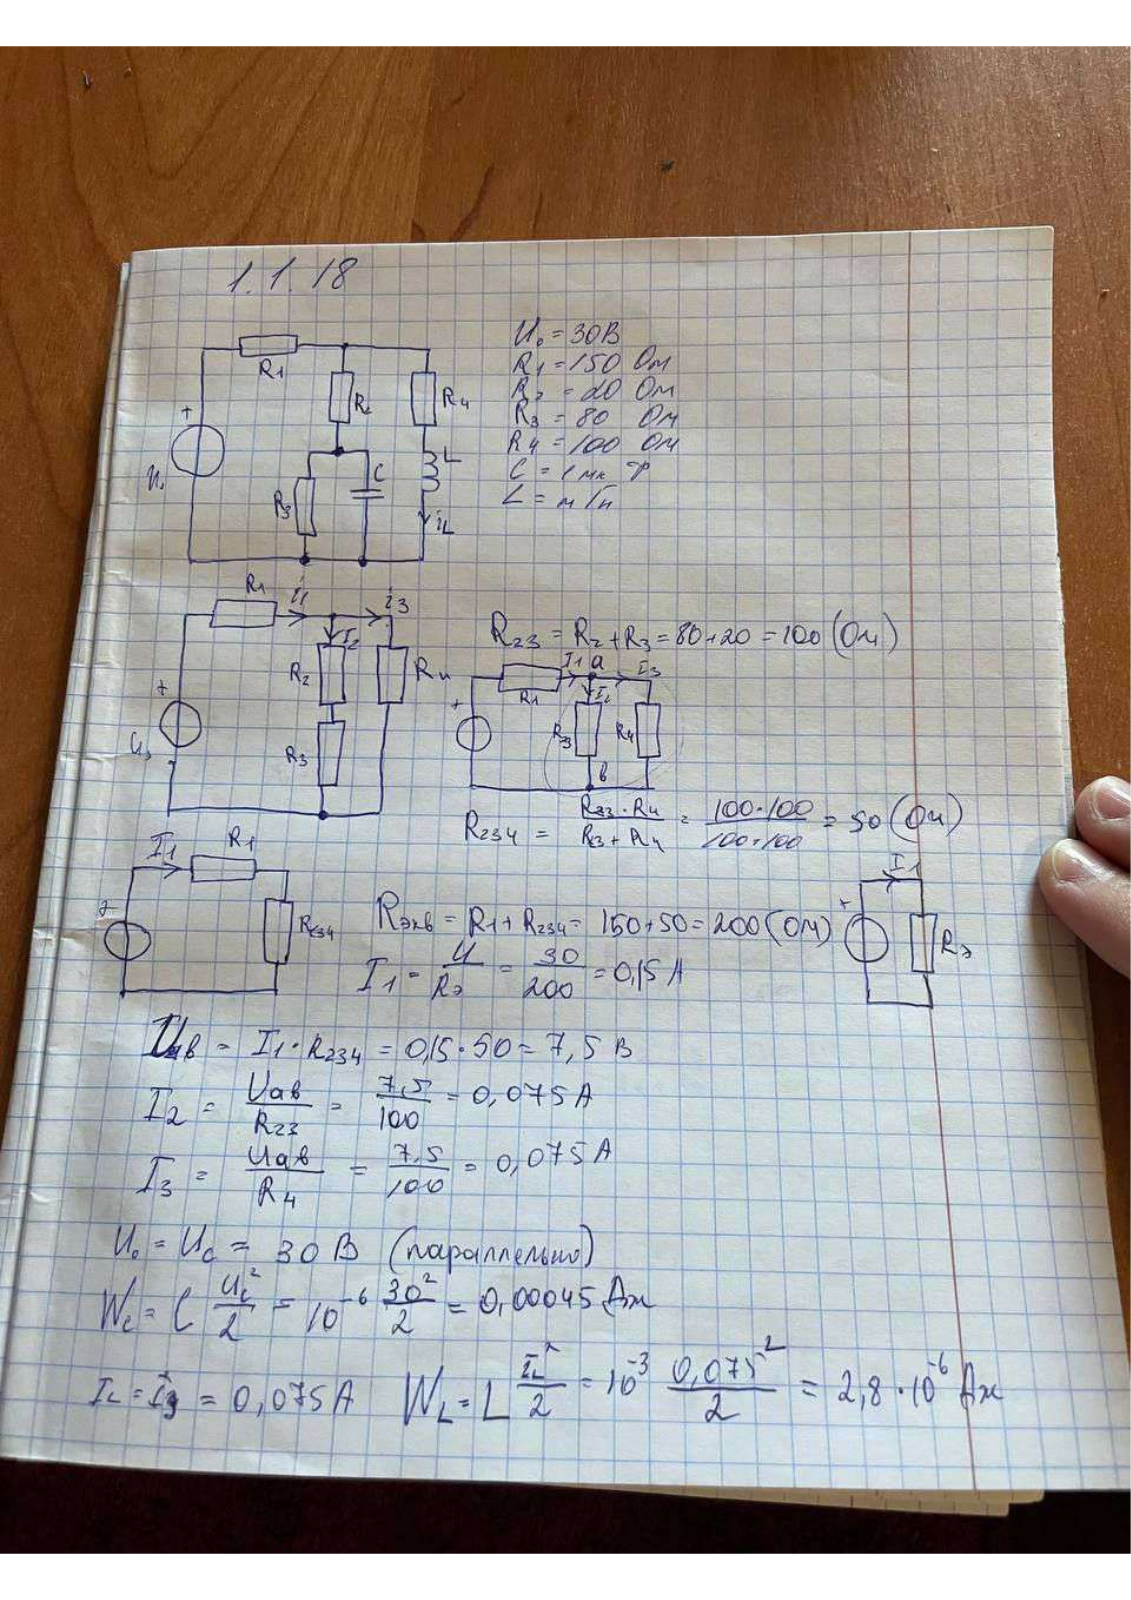 1.1.18
R1
R2
R4
+
U₀
R3
C
L
iL
U₀ = 30В
R1 = 150 Ом
R2 = 20 Ом
R3 = 80 Ом
R4 = 100 Ом
C = 1 мк Ф
L = мГн
R1
i1
i3
I2
R2
R4
+
U₀
R3
R23 = R2 + R3 = 80+20 = 100 (Ом)
I1 a I3
R1
+
I2
R23
R4
в
R234 = R23 · R4 / R23 + R4 = 100·100 / 100+100 = 50 (Ом)
I1
R1
+
R234
Rэкв = R1 + R234 = 150+50 = 200 (Ом)
I1
+
Rэ
I1 = U / Rэ = 30 / 200 = 0,15 А
Uaв = I1 · R234 = 0,15 · 50 = 7,5 В
I2 = Uaв / R23 = 7,5 / 100 = 0,075 А
I3 = Uaв / R4 = 7,5 / 100 = 0,075 А
U₀ = Uc = 30 В (параллельно)
Wc = C Uc² / 2 = 10⁻⁶ 30² / 2 = 0,00045 Дж
IL = I3 = 0,075 А WL = L IL² / 2 = 10⁻³ 0,075² / 2 = 2,8 · 10⁻⁶ Дж